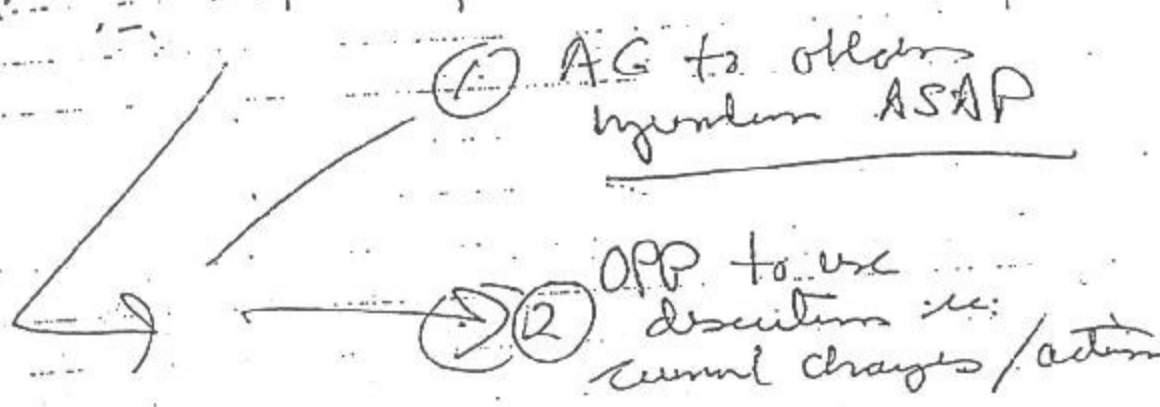 ① AG to obtain
injunction ASAP
② OPP to use
discretion re:
criminal charges / action